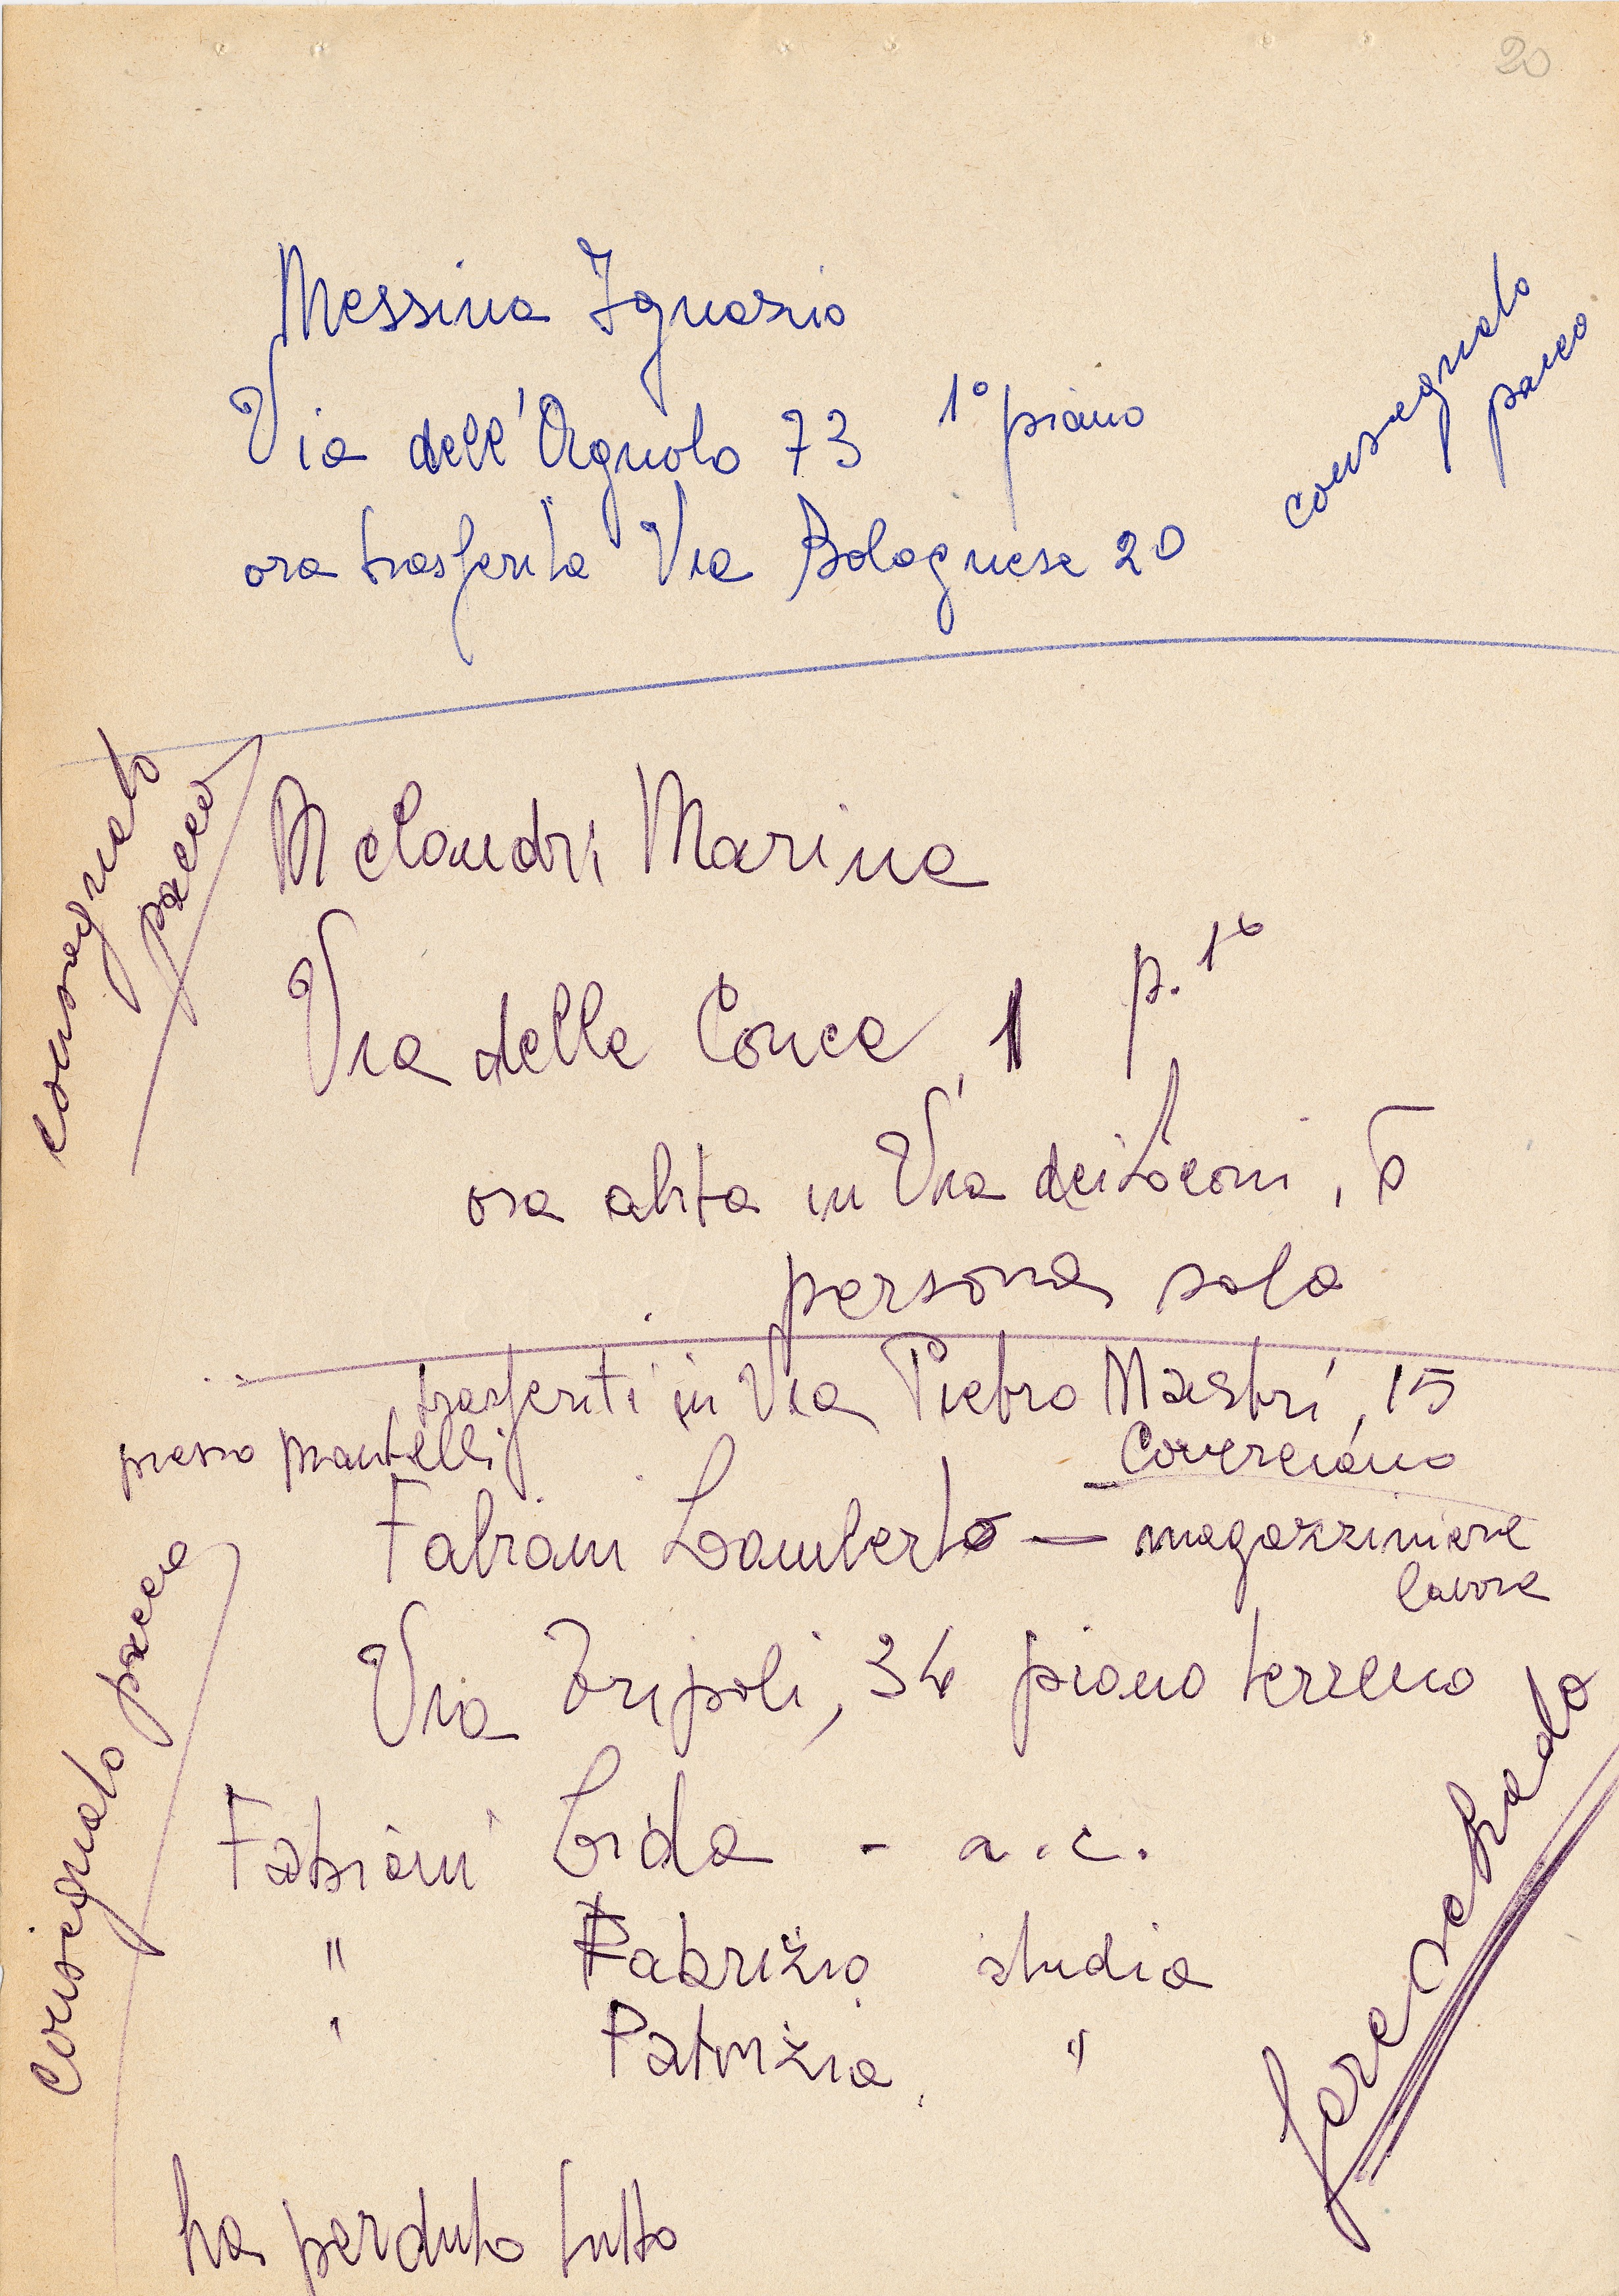 20
Messina Ignazio
Via dell'Agnolo 73 1° piano
ora trasferita Via Bolognese 20
consegnato
pacco
consegnato
pacco
Melandri Marina
Via della Conca, 1 p. 1°
ora abita in Via dei Leoni, 5
persona sola
trasferiti in Via Pietro Maestri, 15
presso Mantelli
Coverciano
Fabiani Lamberto — magazziniere
lavora
Via Tripoli, 34 piano terreno
consegnato pacco
Fabiani Lida - a.c.
" Fabrizio studia
" Patrizia "
fare scheda
ha perduto tutto